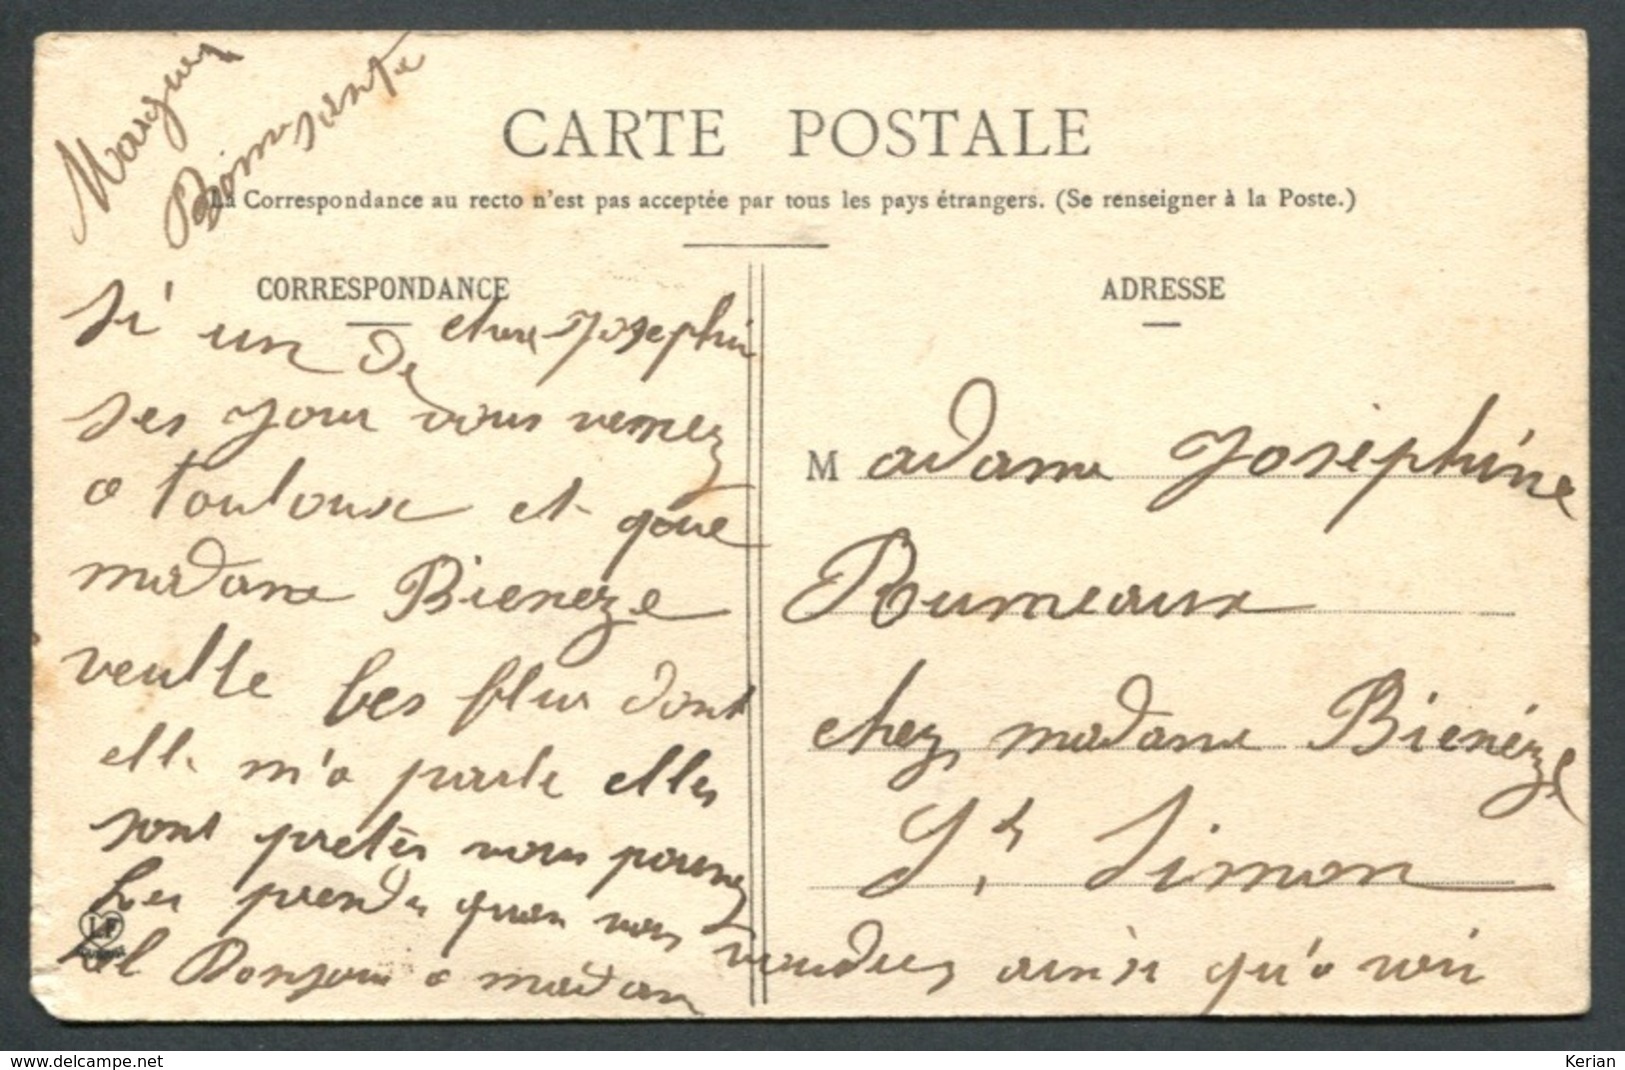 Bonne sante
CARTE POSTALE
La Correspondance au recto n'est pas acceptée par tous les pays étrangers. (Se renseigner à la Poste.)
CORRESPONDANCE
chere Josephine
Si un de
ses jour vous venez
a Toulouse et que
madame Bieneze
veulle les fleur dont
elle m'a parle elles
sont pretes vous pouvez
les prendre quan vous voudrez ainsi qu'a
Bonjour a madame
ADRESSE
M adame Joséphine
Rumeaux
chez madame Bienéze
St Simon
LF
www.delcampe.net
Kerian